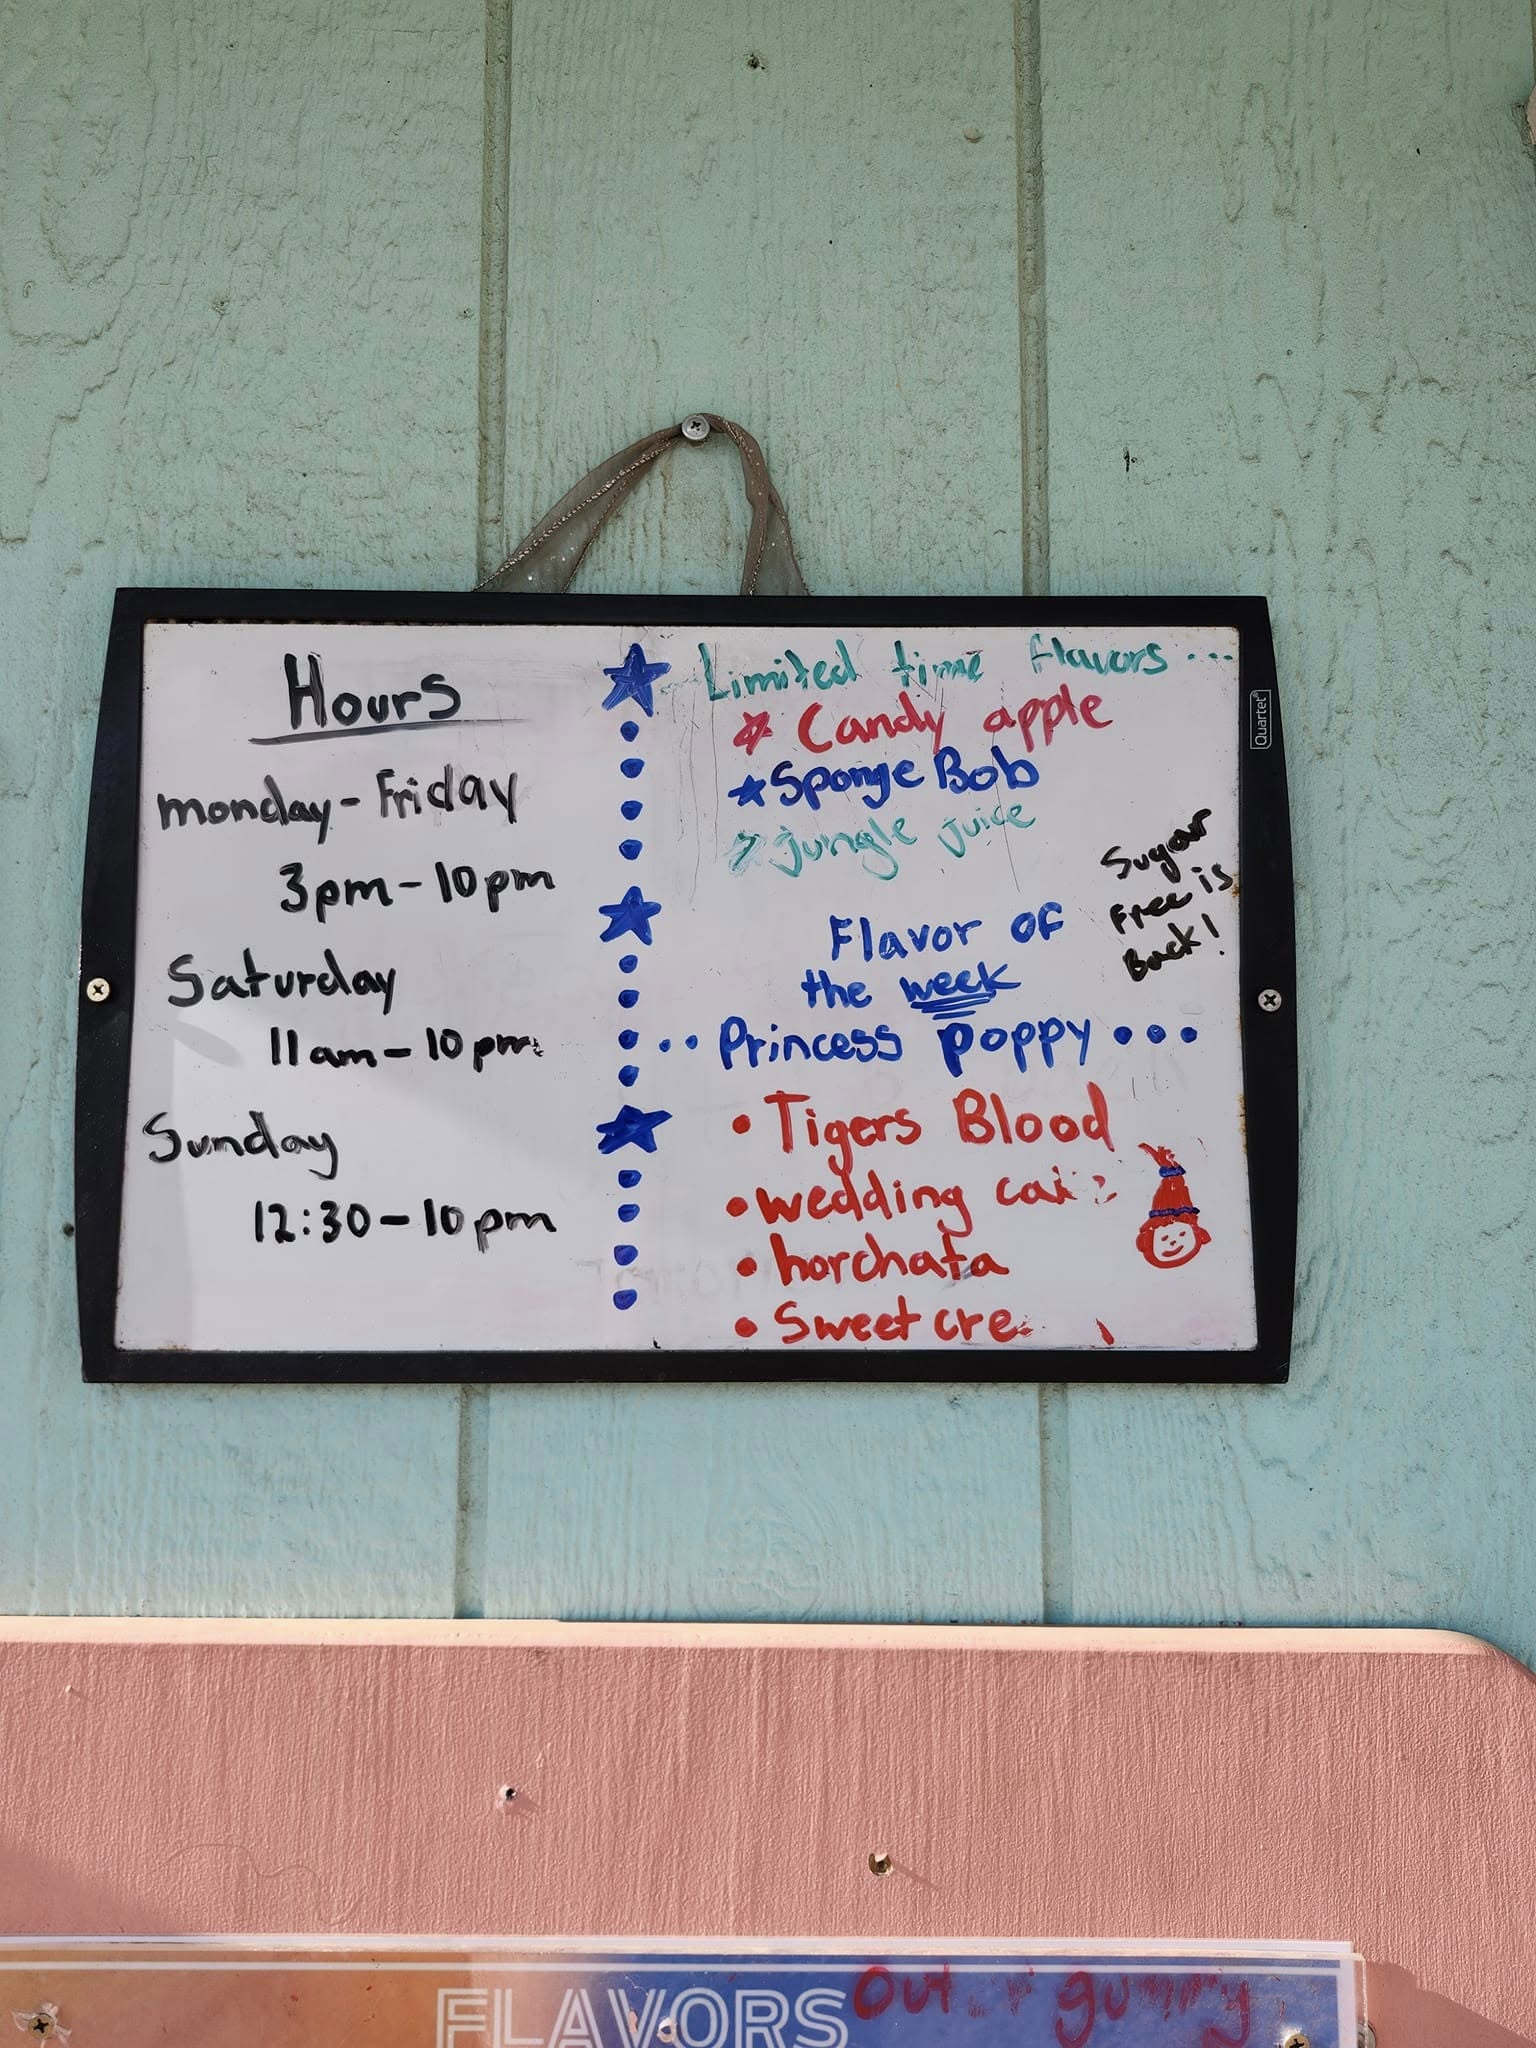 Hours
monday - Friday
3pm - 10pm
Saturday
11am - 10pm
Sunday
12:30 - 10pm
Limited time flavors ...
Candy apple
SpongeBob
jungle juice
Sugar
Free is
Back!
Flavor of
the week
.. Princess poppy ...
• Tigers Blood
• wedding
• horchata
• Sweet cre
Quartet
FLAVORS
Out gummy